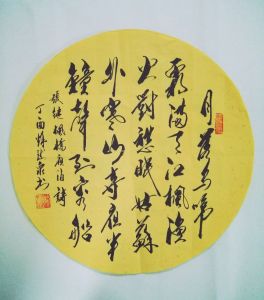 月落烏啼
霜滿天江楓漁
火對愁眠姑蘇
外寒山寺夜半
鐘聲到客船
張繼楓橋夜泊詩
丁酉